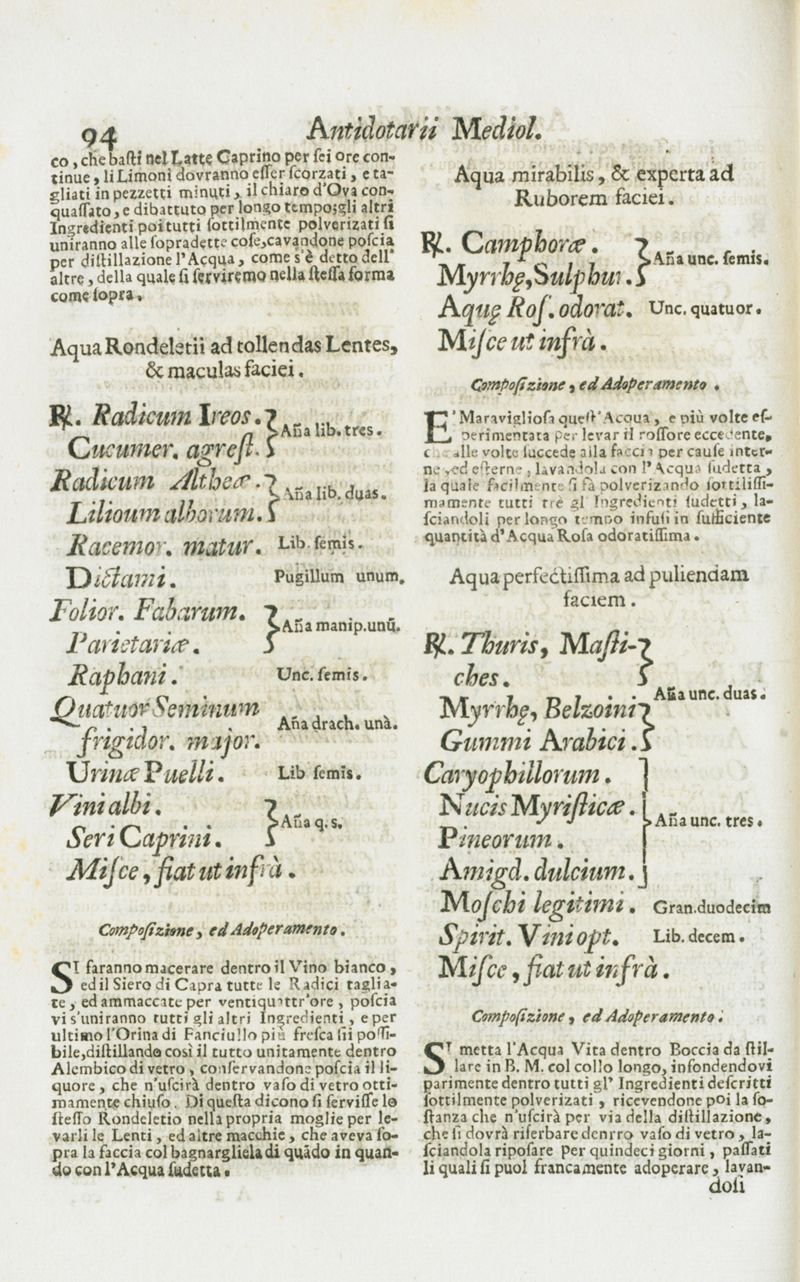 94 Antidotarii Mediol.
co, che basti nel Latte Caprino per sei ore con-
tinue, li Limoni dovranno esser scorzati, e ta-
gliati in pezzetti minuti, il chiaro d'Ova con-
quassato, e dibattuto per longo tempo; gli altri
Ingredienti poi tutti sottilmente polverizati si
uniranno alle sopradette cose, cavandone poscia
per distillazione l'Acqua, come s'è detto dell'
altre, della quale si serviremo nella stessa forma
come sopra.
Aqua Rondeletii ad tollendas Lentes,
& maculas faciei.
℞. Radicum Ireos.
Cucumer. agrest. } Añа lib. tres.
Radicum Altheæ.
Lilioum alborum. } Aña lib. duas.
Racemor. matur. Lib. semis.
Dictami. Pugillum unum.
Folior. Fabarum.
Parietariæ. } Aña manip. unũ.
Raphani. Unc. semis.
Quatuor Seminum
frigidor. major. Aña drach. unà.
Urinæ Puelli. Lib semis.
Vini albi.
Seri Caprini. } Aña q. s.
Misce, fiat ut infrà.
Composizione, ed Adoperamento.
SI faranno macerare dentro il Vino bianco,
ed il Siero di Capra tutte le Radici taglia-
te, ed ammaccate per ventiquattr'ore, poscia
vi s'uniranno tutti gli altri Ingredienti, e per
ultimo l'Orina di Fanciullo più fresca sii possi-
bile, distillando così il tutto unitamente dentro
Alembico di vetro, conservandone poscia il li-
quore, che n'uscirà dentro vaso di vetro otti-
mamente chiuso. Di questa dicono si servisse lo
stesso Rondeletio nella propria moglie per le-
varli le Lenti, ed altre macchie, che aveva so-
pra la faccia col bagnargliela di quãdo in quan-
do con l'Acqua sudetta.
Aqua mirabilis, & experta ad
Ruborem faciei.
℞. Camphoræ.
Myrrhę, Sulphur. } Aña unc. semis.
Aquę Ros. odorat. Unc. quatuor.
Misce ut infrà.
Composizione, ed Adoperamento.
E'Maravigliosa quest'Acqua, e più volte es-
perimentata per levar il rossore eccedente,
alle volte succede alla faccia per cause inter-
ne, ed esterne, lavandola con l'Acqua sudetta,
la quale facilmente si fà polverizando sottilissi-
mamente tutti tré gl'Ingredienti sudetti, la-
sciandoli per longo tempo infusi in sufficiente
quantità d'Acqua Rosa odoratissima.
Aqua perfectissima ad puliendam
faciem.
℞. Thuris, Masti-
ches.
Myrrhę, Belzoini
Gummi Arabici. } Aña unc. duas.
Caryophillorum.
Nucis Myristicæ.
Pineorum.
Amigd. dulcium. } Aña unc. tres.
Moschi legitimi. Gran. duodecim
Spirit. Vini opt. Lib. decem.
Misce, fiat ut infrà.
Composizione, ed Adoperamento.
SI metta l'Acqua Vita dentro Boccia da stil-
lare in B. M. col collo longo, infondendovi
parimente dentro tutti gl' Ingredienti descritti
sottilmente polverizati, ricevendone poi la so-
stanza che n'uscirà per via della distillazione,
che si dovrà riserbare dentro vaso di vetro, la-
sciandola riposare per quindeci giorni, passati
li quali si puol francamente adoperare, lavan-
dosi